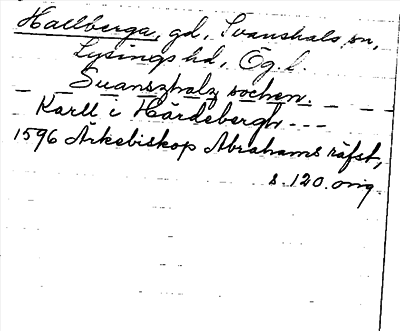 Hallberga, gd, Svanshals sn,
Lysings hd, Ög. l.
_ _ Suanszhalz sochen. _ _ _
Karll i Hårdebergh - - -
1596 Ärkebiskop Abrahams räfst,
s. 120. orig.